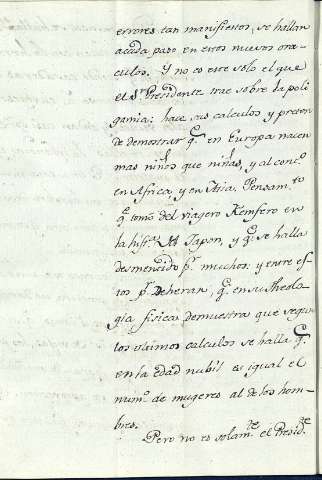 errores tan manifiestos, se hallan
acada paso en estos nuevos ora-
culos. Y no es este solo el que
el Sr. Presidente trae sobre la poli-
gamia: hace sus calculos, y preten-
de demostrar q.e en Europa nacen
mas niños que niñas, y al conto.
en Africa, y en Asia. Pensam.to
q.e tomó del viagero Kemfero en
la hist.a del Japon, y q.e se halla
desmentido p.r muchos: y entre es-
tos p.r Deheran, q.e en su theolo-
gia fisica demuestra que segun
los ultimos calculos se halla q.e
en la edad nubil es igual el
num.o de mugeres al de los hom-
bres.
Pero no es solam.te el Presid.te